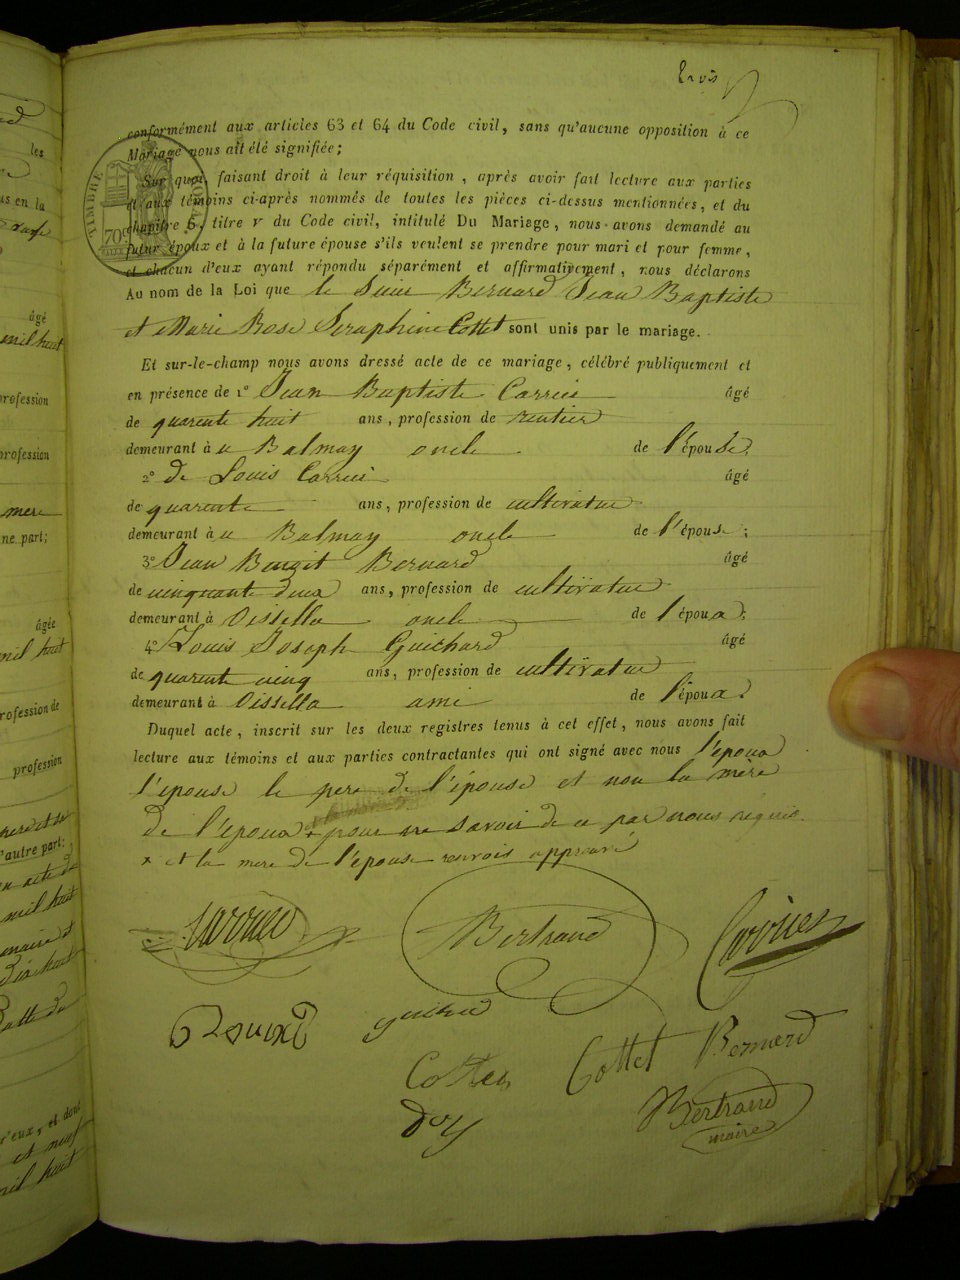 trois
conformément aux articles 63 et 64 du Code civil, sans qu'aucune opposition à ce
Mariage nous ait été signifiée;
Sur quoi, faisant droit à leur réquisition, après avoir fait lecture aux parties
et aux témoins ci-après nommés de toutes les pièces ci-dessus mentionnées, et du
chapitre 6, titre v du Code civil, intitulé Du Mariage, nous avons demandé au
futur époux et à la future épouse s'ils veulent se prendre pour mari et pour femme,
et chacun d'eux ayant répondu séparément et affirmativement, nous déclarons
Au nom de la Loi que le Sieur Bernard Jean Baptiste
et Marie Rose Seraphine Cottet sont unis par le mariage.
Et sur-le-champ nous avons dressé acte de ce mariage, célébré publiquement et
en présence de 1° Jean Baptiste Carrier âgé
de quarente huit ans, profession de rentier
demeurant à a Balmay oncle de l'épouse
2° de Louis Carrier âgé
de quarente ans, profession de cultivateur
demeurant à a Balmay oncle de l'épouse;
3° Jean Benoit Bernard âgé
de cinquante deux ans, profession de cultivateur
demeurant à Oissella oncle de l'époux;
4° Louis Joseph Guichard âgé
de quarente cinq ans, profession de cultivateur
demeurant à Oissella ami de l'époux.
Duquel acte, inscrit sur les deux registres tenus à cet effet, nous avons fait
lecture aux témoins et aux parties contractantes qui ont signé avec nous l'époux
l'épouse le pere de l'épouse et non la mère
de l'époux x pour ne savoir de ce par nous réquis.
x et la mere de l'épouse renvois approuvé
TIMBRE
70c
Bertrand
Carrier
Guichard
Cottet
Cottet Bernard
Bertrand
maire
les
âgé
mil huit
profession
profession
mere
ne part;
âgée
mil huit
profession de
profession
l'autre part;
mil huit
d'eux, et dont
et neuf
mil huit